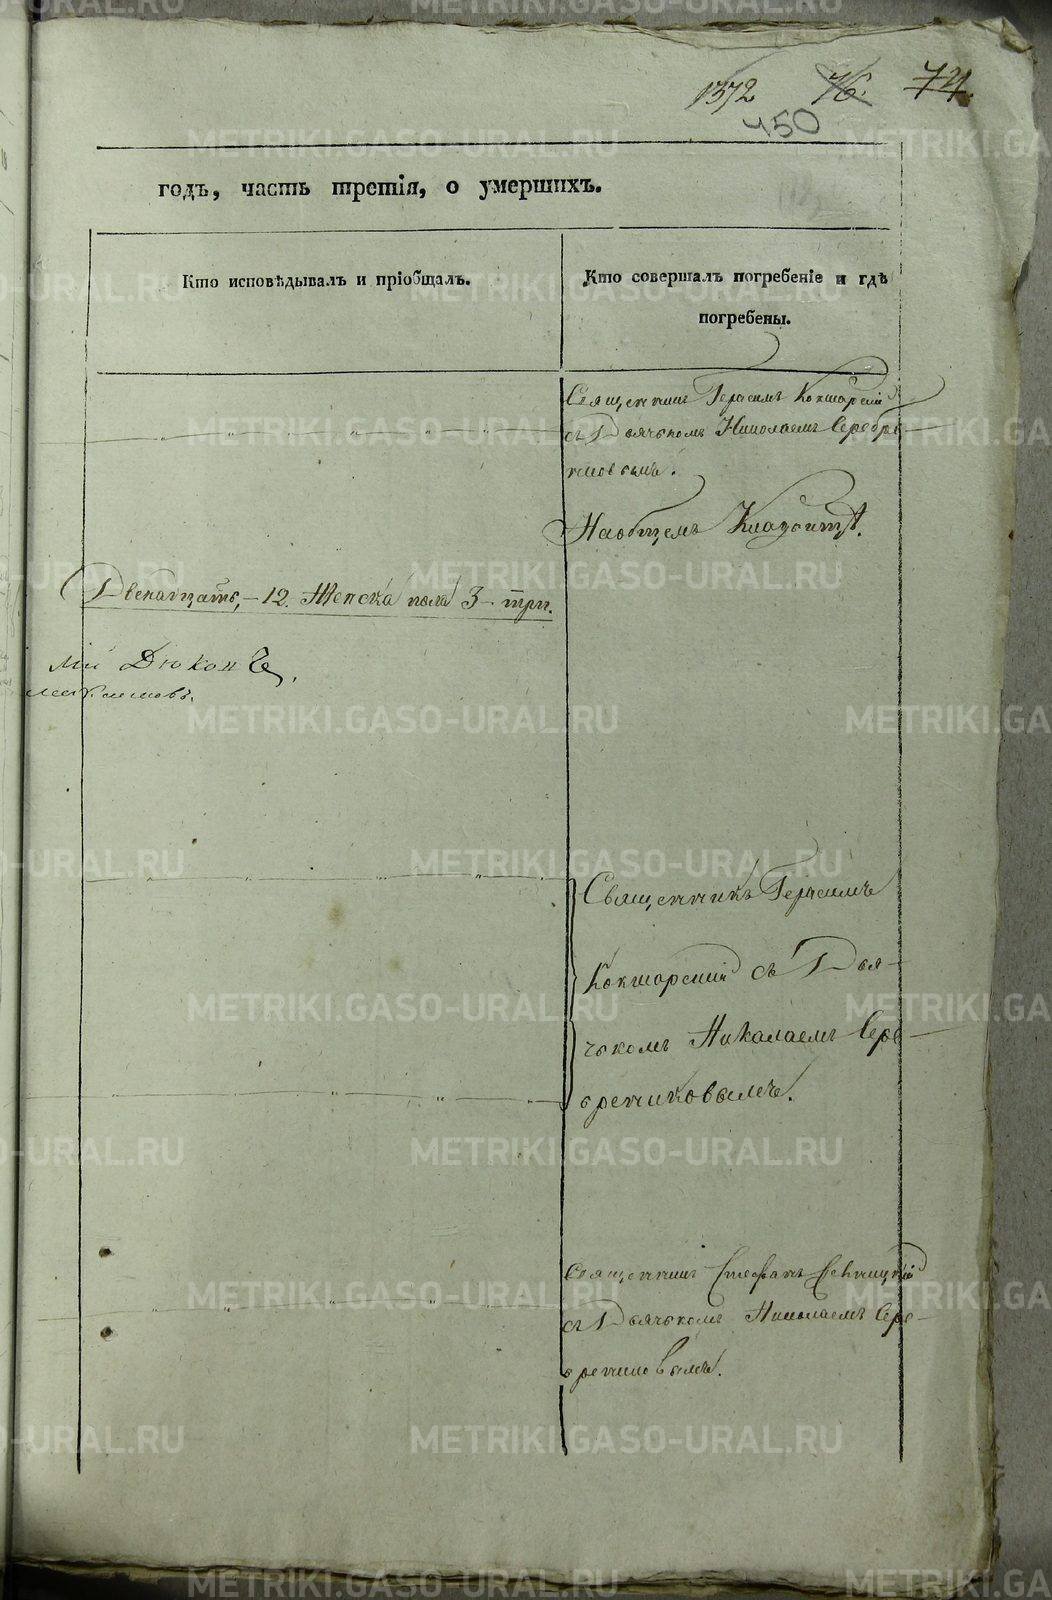 1372 76. 74.
450
годъ, часть третія, о умершихъ.
Кто исповѣдывалъ и пріобщалъ.
Кто совершалъ погребеніе и гдѣ
погребены.
Священникъ Герасимъ Кокшарскій
съ Дьячкомъ Николаемъ Серебре-
никовымъ.
На общемъ Кладбищѣ.
Двенатцать, - 12. Женска пола 3 - три.
мій Дюконъ
Священникъ Герасимъ
Кокшарскій съ Дья-
чкомъ Николаемъ Сере-
брениковымъ.
Священникъ Стефанъ
съ Дьячкомъ Николаемъ Сере-
брениковымъ.
METRIKI.GASO-URAL.RU